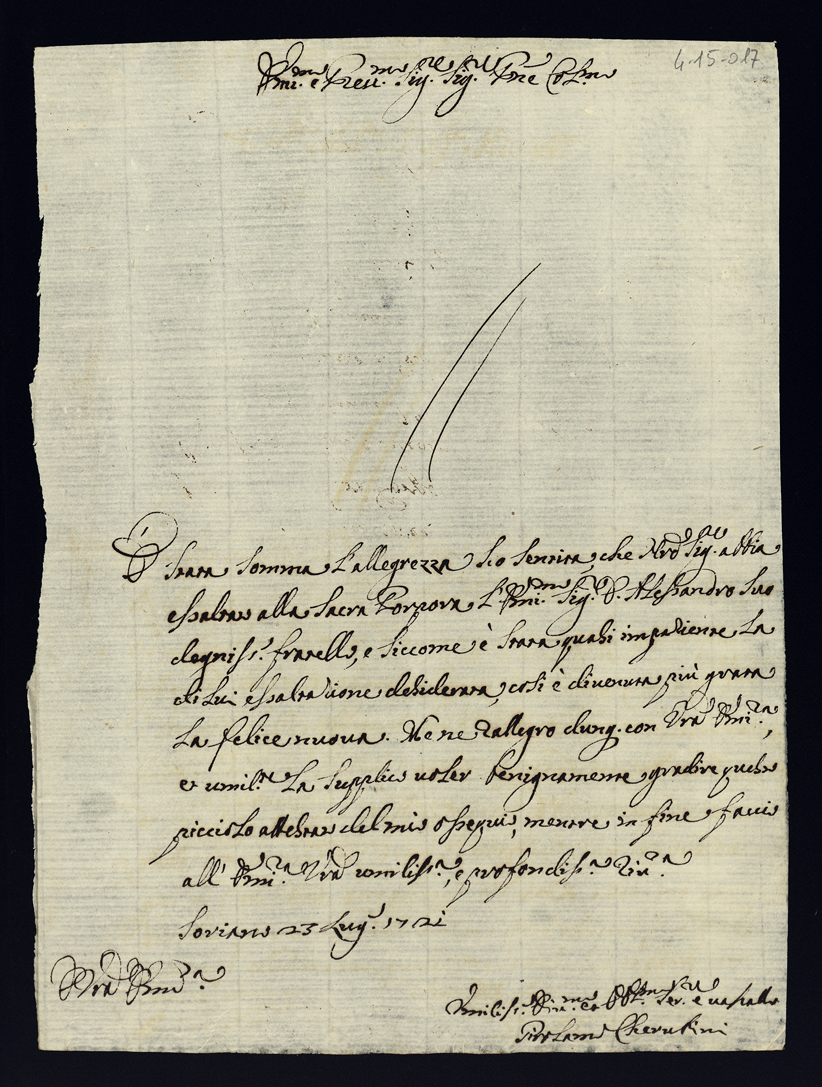 4-15-017
Emi. e Rev.mo Sig.re Sig.r Pne Col.mo
È stata somma l'allegrezza ho sentita, che Nro Sig.re abbia
essaltato alla Sacra Porpora l'Emi.mo Sig.r D. Alessandro suo
degniss.o fratello, e siccome è stata quasi impaziente la
di lui essaltazione desiderata, così è divenuta più grata
la felice nuova. Me ne rallegro dunq. con Vra Emi.za,
et umil.te la supplico voler benignamente gradire questo
picciolo attestato del mio ossequio, mentre in fine faccio
all' Emi.za Vra umiliss.a, e profondiss.a riv.za.
Soriano 23 Lug.o 1721
Vra Em.za
Umiliss. ser. e vassallo
Girolamo Cherubini